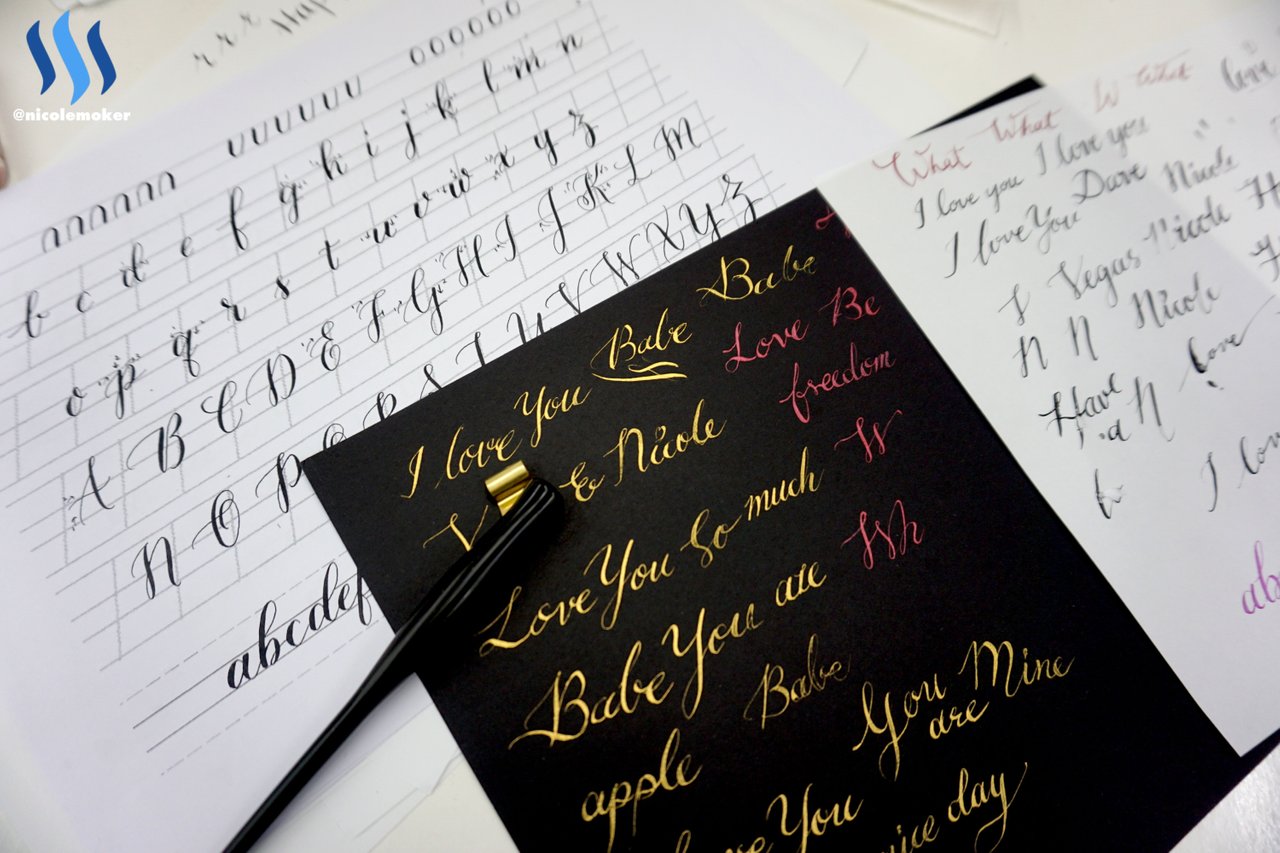 @nicolemoker
r r r
b c d e f g h i j k l m n
o p q r s t u v w x y z
A B C D E F G H I J K L M
N O P
U V W X Y Z
abcdef
I love You Babe Babe
& Nicole
Love Be
freedom
Love You So much W
Babe You are Wh
apple Babe You Mine
are
You
nice day
What What W What
I love you I love you
I love You Dave Nicole
Vegas Nicole
N N Nicole
Have N love